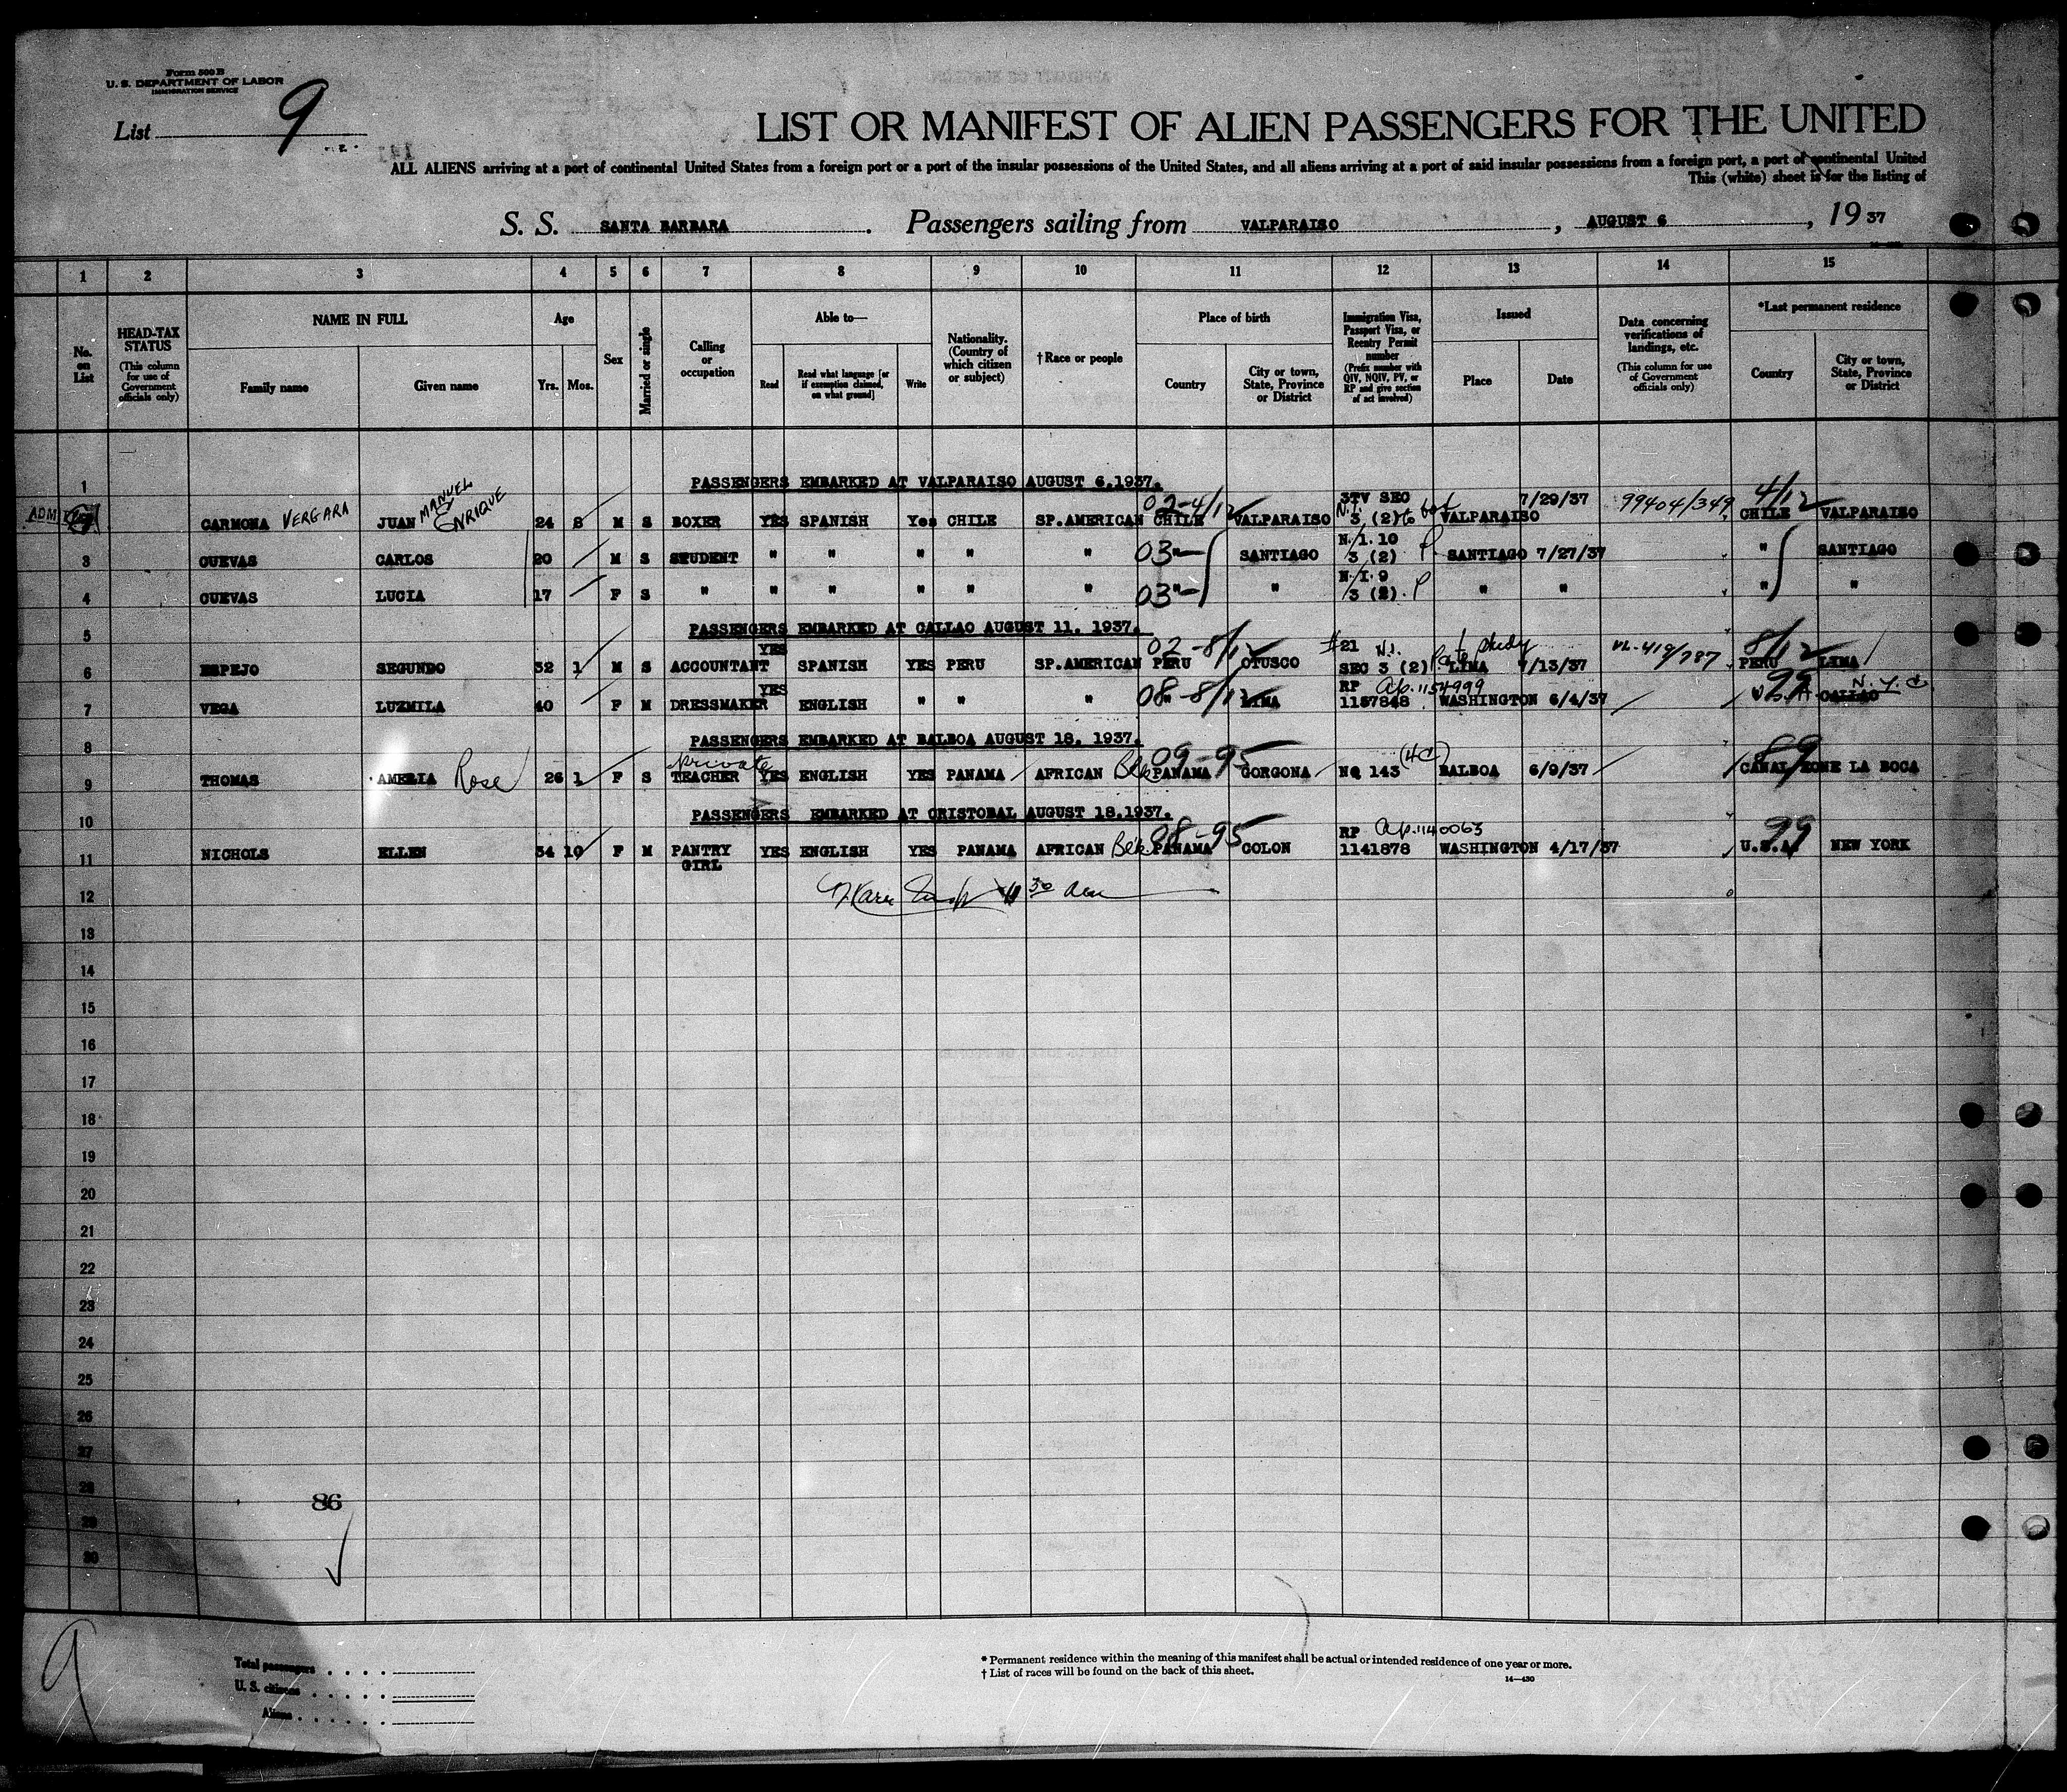 Form 500 B
U. S. DEPARTMENT OF LABOR
IMMIGRATION SERVICE
List 9
LIST OR MANIFEST OF ALIEN PASSENGERS FOR THE UNITED
ALL ALIENS arriving at a port of continental United States from a foreign port or a port of the insular possessions of the United States, and all aliens arriving at a port of said insular possessions from a foreign port, a port of continental United
This (white) sheet is for the listing of
S. S. SANTA BARBARA . Passengers sailing from VALPARAISO , AUGUST 6 , 19 37
1 2 3 4 5 6 7 8 9 10 11 12 13 14 15
No. on List
HEAD-TAX STATUS
(This column for use of Government officials only)
NAME IN FULL
Family name
Given name
Age
Yrs. Mos.
Sex
Married or single
Calling or occupation
Able to—
Read
Read what language [or if exemption claimed, on what ground]
Write
Nationality. (Country of which citizen or subject)
†Race or people
Place of birth
Country
City or town, State, Province or District
Immigration Visa, Passport Visa, or Reentry Permit number
(Prefix number with QIV, NQIV, PV, or RP and give section of act involved)
Issued
Place
Date
Data concerning verifications of landings, etc.
(This column for use of Government officials only)
*Last permanent residence
Country
City or town, State, Province or District
1 PASSENGERS EMBARKED AT VALPARAISO AUGUST 6.1937.
CARMONA VERGARA JUAN MANUEL ENRIQUE 24 8 M S BOXER YES SPANISH Yes CHILE SP.AMERICAN 02-4/12 CHILE VALPARAISO 3TV SEC N.I. 3 (2) to box VALPARAISO 7/29/37 99404/349 4/12 CHILE VALPARAISO
3 CUEVAS CARLOS 20 M S STUDENT " " " " " 03 " SANTIAGO N.I. 10 3 (2) P SANTIAGO 7/27/37 " SANTIAGO
4 CUEVAS LUCIA 17 F S " " " " " " 03 " " N.I. 9 3 (2). P " " " "
5 PASSENGERS EMBARKED AT CALLAO AUGUST 11. 1937.
6 ESPEJO SEGUNDO 32 1 M S ACCOUNTANT YES SPANISH YES PERU SP.AMERICAN 02-8/12 PERU OTUSCO #21 N.I. SEC 3 (2) P to study LIMA 7/13/37 VL-419/787 8/12 PERU LIMA
7 VEGA LUZMILA 40 F M DRESSMAKER YES ENGLISH " " " 08-8/12 " LIMA RP Ap.1154999 1157848 WASHINGTON 6/4/37 99 U.S.A. CALLAO N.Y.C
8 PASSENGERS EMBARKED AT BALBOA AUGUST 18. 1937.
9 THOMAS AMELIA Rose 26 1 F S private TEACHER YES ENGLISH YES PANAMA AFRICAN Blk 09-95 PANAMA GORGONA NQ 143 (4C) BALBOA 6/9/37 89 CANAL ZONE LA BOCA
10 PASSENGERS EMBARKED AT CRISTOBAL AUGUST 18.1937.
11 NICHOLS ELLEN 34 10 F M PANTRY GIRL YES ENGLISH YES PANAMA AFRICAN Blk 08-95 PANAMA COLON RP Ap.1140063 1141878 WASHINGTON 4/17/37 99 U.S.A. NEW YORK
12
13
14
15
16
17
18
19
20
21
22
23
24
25
26
27
28
86
29
30
9
Total passengers
U. S. citizens
Aliens
* Permanent residence within the meaning of this manifest shall be actual or intended residence of one year or more.
† List of races will be found on the back of this sheet.
14—430